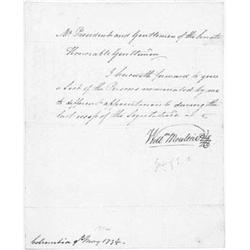 Mr President and Gentlemen of the Senate
Honorable Gentlemen
I herewith forward to you
a List of the Persons nominated by me
to different appointments during the
last recess of the Legislature
Will^m Moultrie
Columbia 9th May 1794